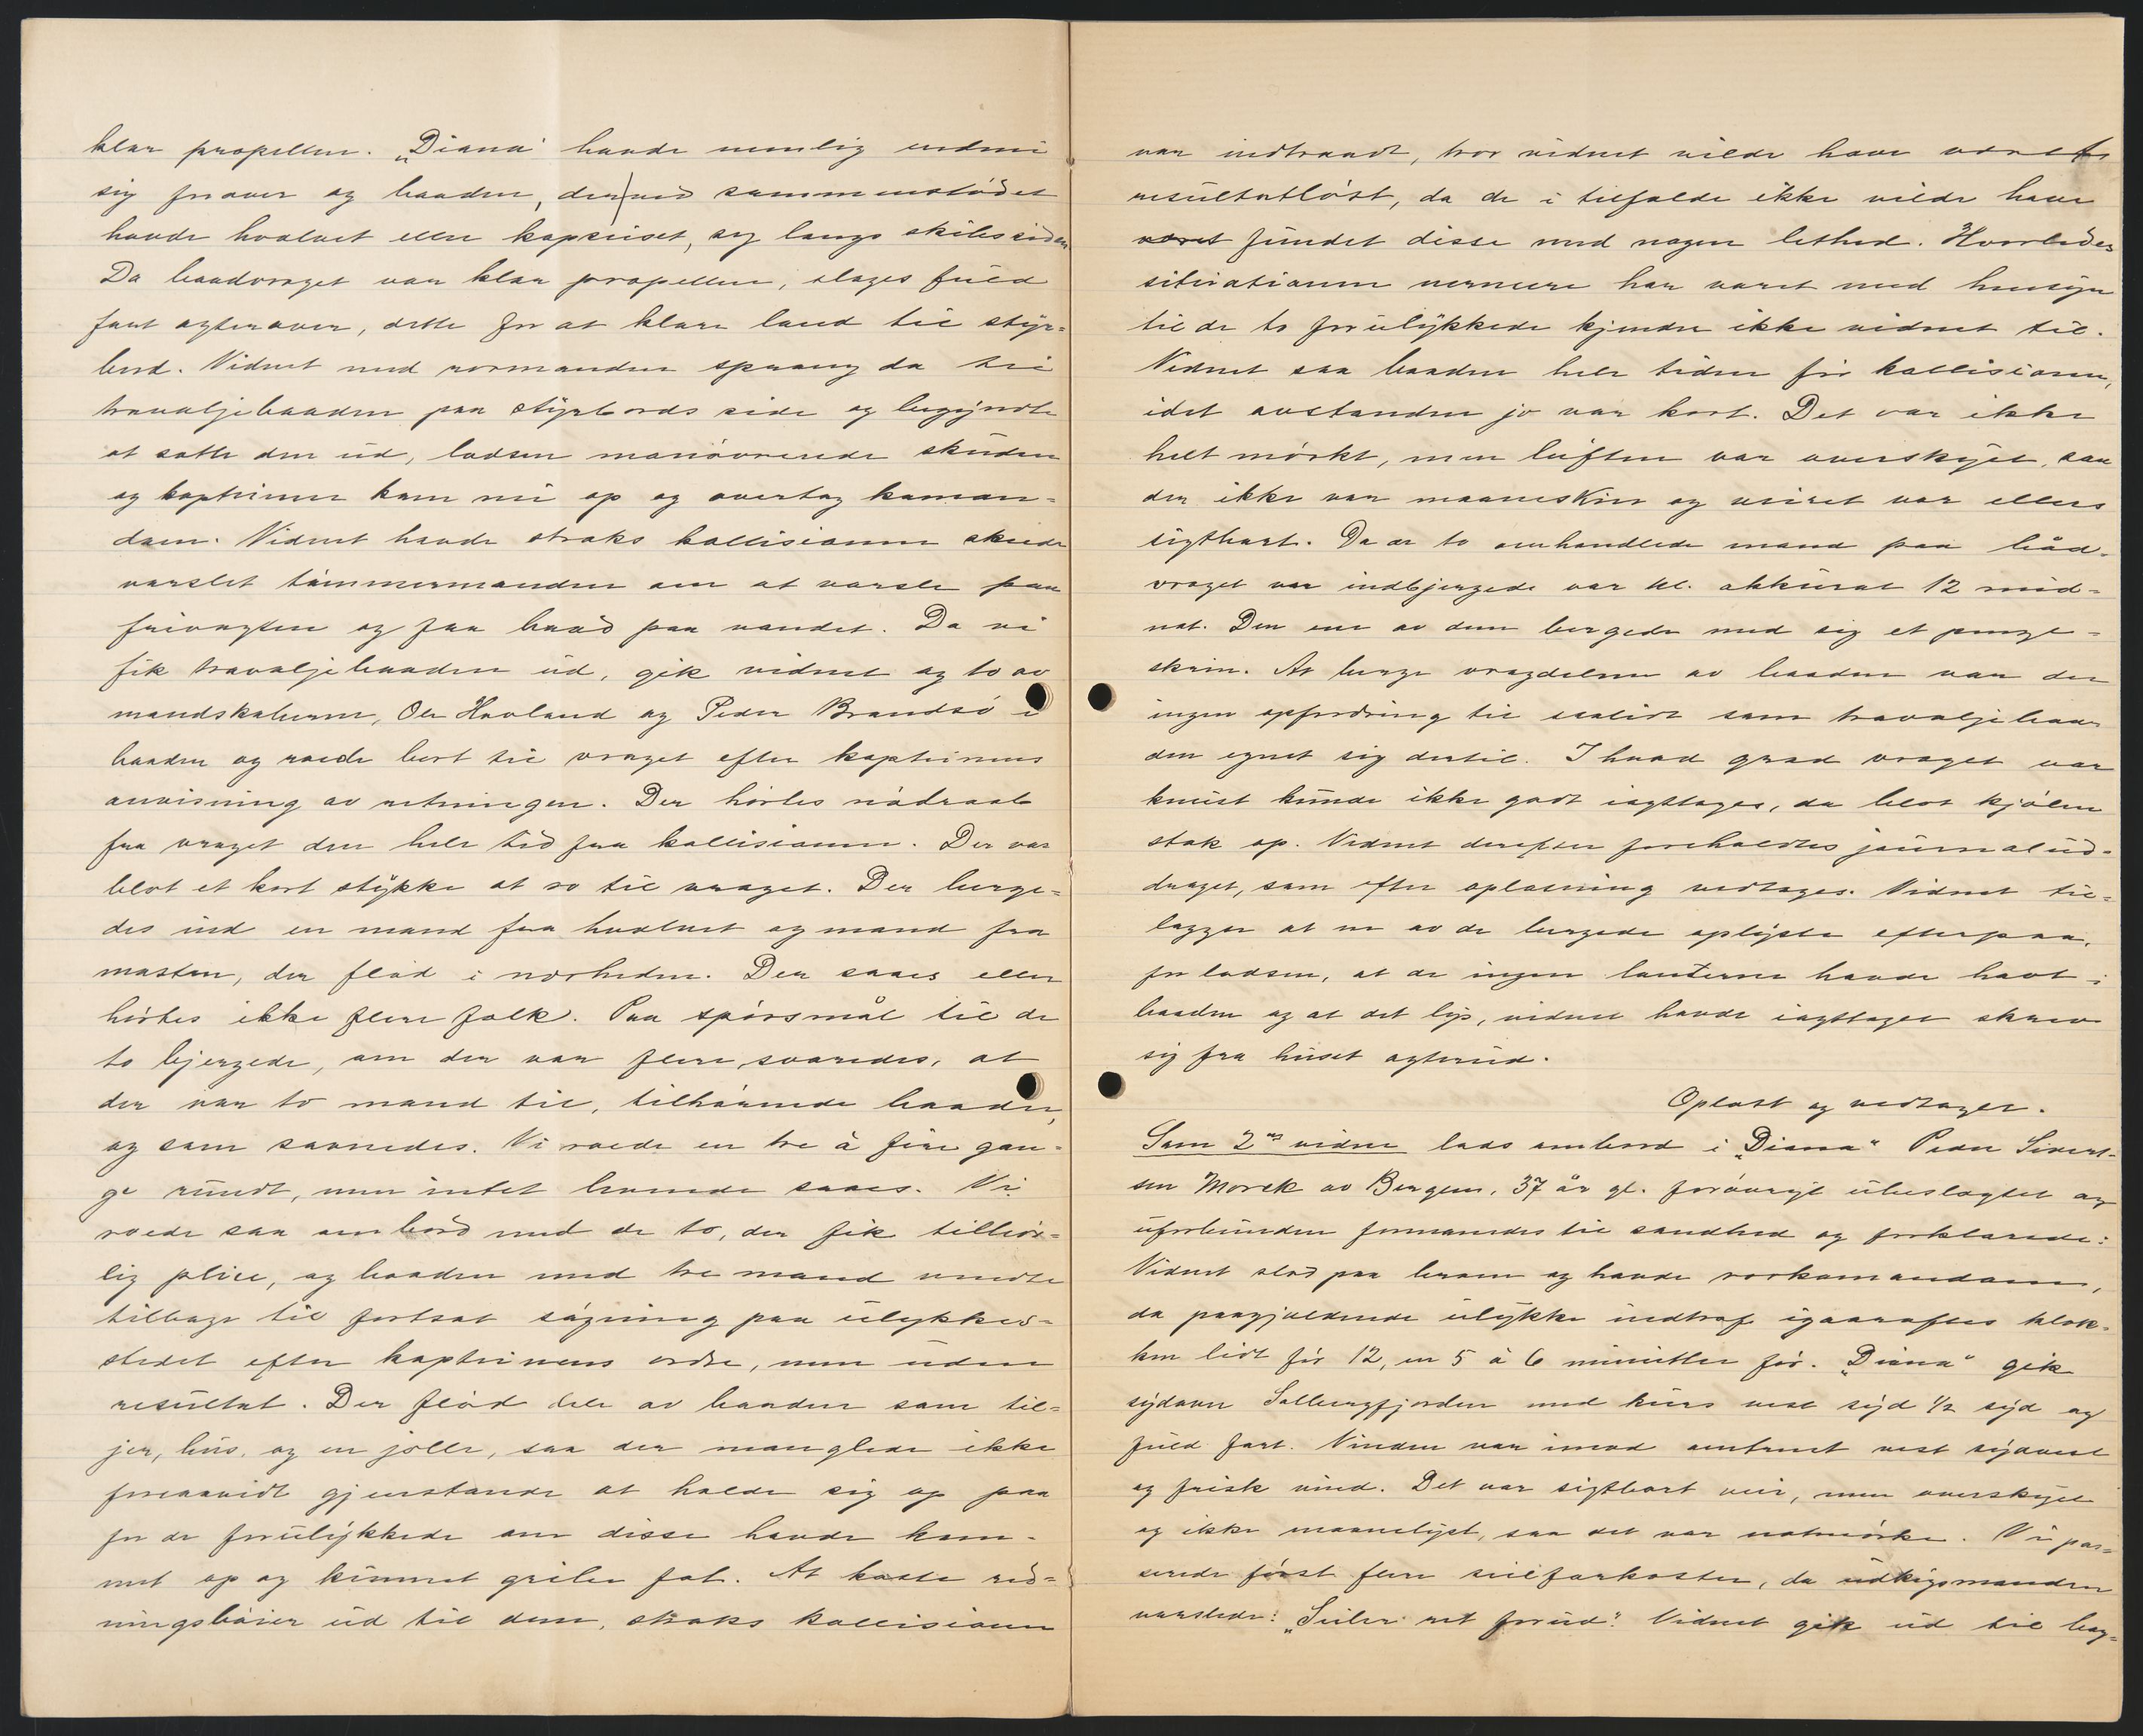 klar propellen. „Diana" havde nemlig endnu
sig forover og baaden, der ved sammenstödet
havde hvalvet eller kapseiset, seg langs skibssiden.
Da baadvraget var klar propellen, sloges fuld
fart agterover, dette for at klare land til styr=
bord. Vidnet med rormanden sprang da til
travaljebaaden paa styrbords side og begyndte
at sætte den ud, lodsen manövrerede skuden
og kapteinen kom nu op og overtog komman=
doen. Vidnet havde straks kollisionen skede
varslet tömmermanden om at varsle paa
frivagten og faa baad paa vandet. Da vi
fik travaljebaaden ud, gik vidnet og to av
mandskaberne, Ole Havland og Peder Brandsö i
baaden og roede bort til vraget efter kapteinens
anvisning av retningen. Der hörtes nödraab
fra vraget den hele tid fra kollisionen. Der var
blot et kort stykke at ro til vraget. Der berge=
des ind en mand fra hvalvet og mand fra
masten, der flöd i nærheden. Der saaes eller
hörtes ikke flere folk. Paa spörsmål til de
to bjergede, om der var flere, svaredes, at
der var to mand til, tilhörende baaden,
og som savnedes. Vi roede en tre à fire gan=
ge rundt, men intet levende saaes. Vi
roede saa ombord med de to, der fik tilbör=
lig pleie, og baaden med tre mand vendte
tilbage til fortsat sögning paa ulykkes=
stedet efter kapteinens ordre, men uden
resultat. Der flöd dele av baaden som til=
jer, hus, og en jolle, saa der manglede ikke
forsaavidt gjenstande at holde sig op paa
for de forulykkede om disse havde kom=
met op og kunnet gribe fat. At kaste red=
ningsböier ud til dem, straks kollisionen
var indtraadt, tror vidnet vilde have været
resultatlöst, da de i tilfælde ikke vilde have
været fundet disse med nogen lethed. Hvorledes
situationen nærmere har været med hensyn
til de to forulykkede kjender ikke vidnet til.
Vidnet saa baaden hele tiden för kollisionen,
idet avstanden jo var kort. Det var ikke
helt mörkt, men luften var overskyet, saa
der ikke var maaneskin og veiret var ellers
sigtbart. Da de to omhandlede mand paa båd-
vraget var indbjergede var kl. akkurat 12 mid=
nat. Den ene av dem bergede med sig et penge=
skrin. At berge vragdelene av baaden var der
ingen opfordring til saalidt som travaljebaa=
den egnet sig dertil. I hvad grad vraget var
knust kunde ikke godt iagttages, da blot kjölen
stak op. Vidnet derefter foreholdtes journalud=
draget, som efter oplæsning vedtoges. Vidnet til=
lægger at en av de bergede oplyste efterpaa,
for lodsen, at de ingen lanterne havde havt i
baaden og at det lys, vidnet havde iagttaget skrev
sig fra huset agterud.
Oplæst og vedtaget.
Som 2det vidne lods ombord i „Diana" Peder Sivert-
sen Morek av Bergen, 37 år gl. forövrigt ubeslægtet og
uforbunden formanedes til sandhed og forklarede:
Vidnet stod paa broen og havde rorkomandoen,
da paagjældende ulykke indtraf igaaraftes klok=
ken lidt för 12, en 5 à 6 minutter för. „Diana" gik
sydover Solbergfjorden med kurs vest syd ½ syd og
fuld fart. Vinden var imod omtrent vest sydvest
og frisk vind. Det var sigtbart veir, men overskyet
og ikke maanelyst, saa det var natmörke. Vi pas=
serede först flere seilfarkoster, da udkigsmanden
varslede: „Seiler ret forud". Vidnet gik ud til bag=